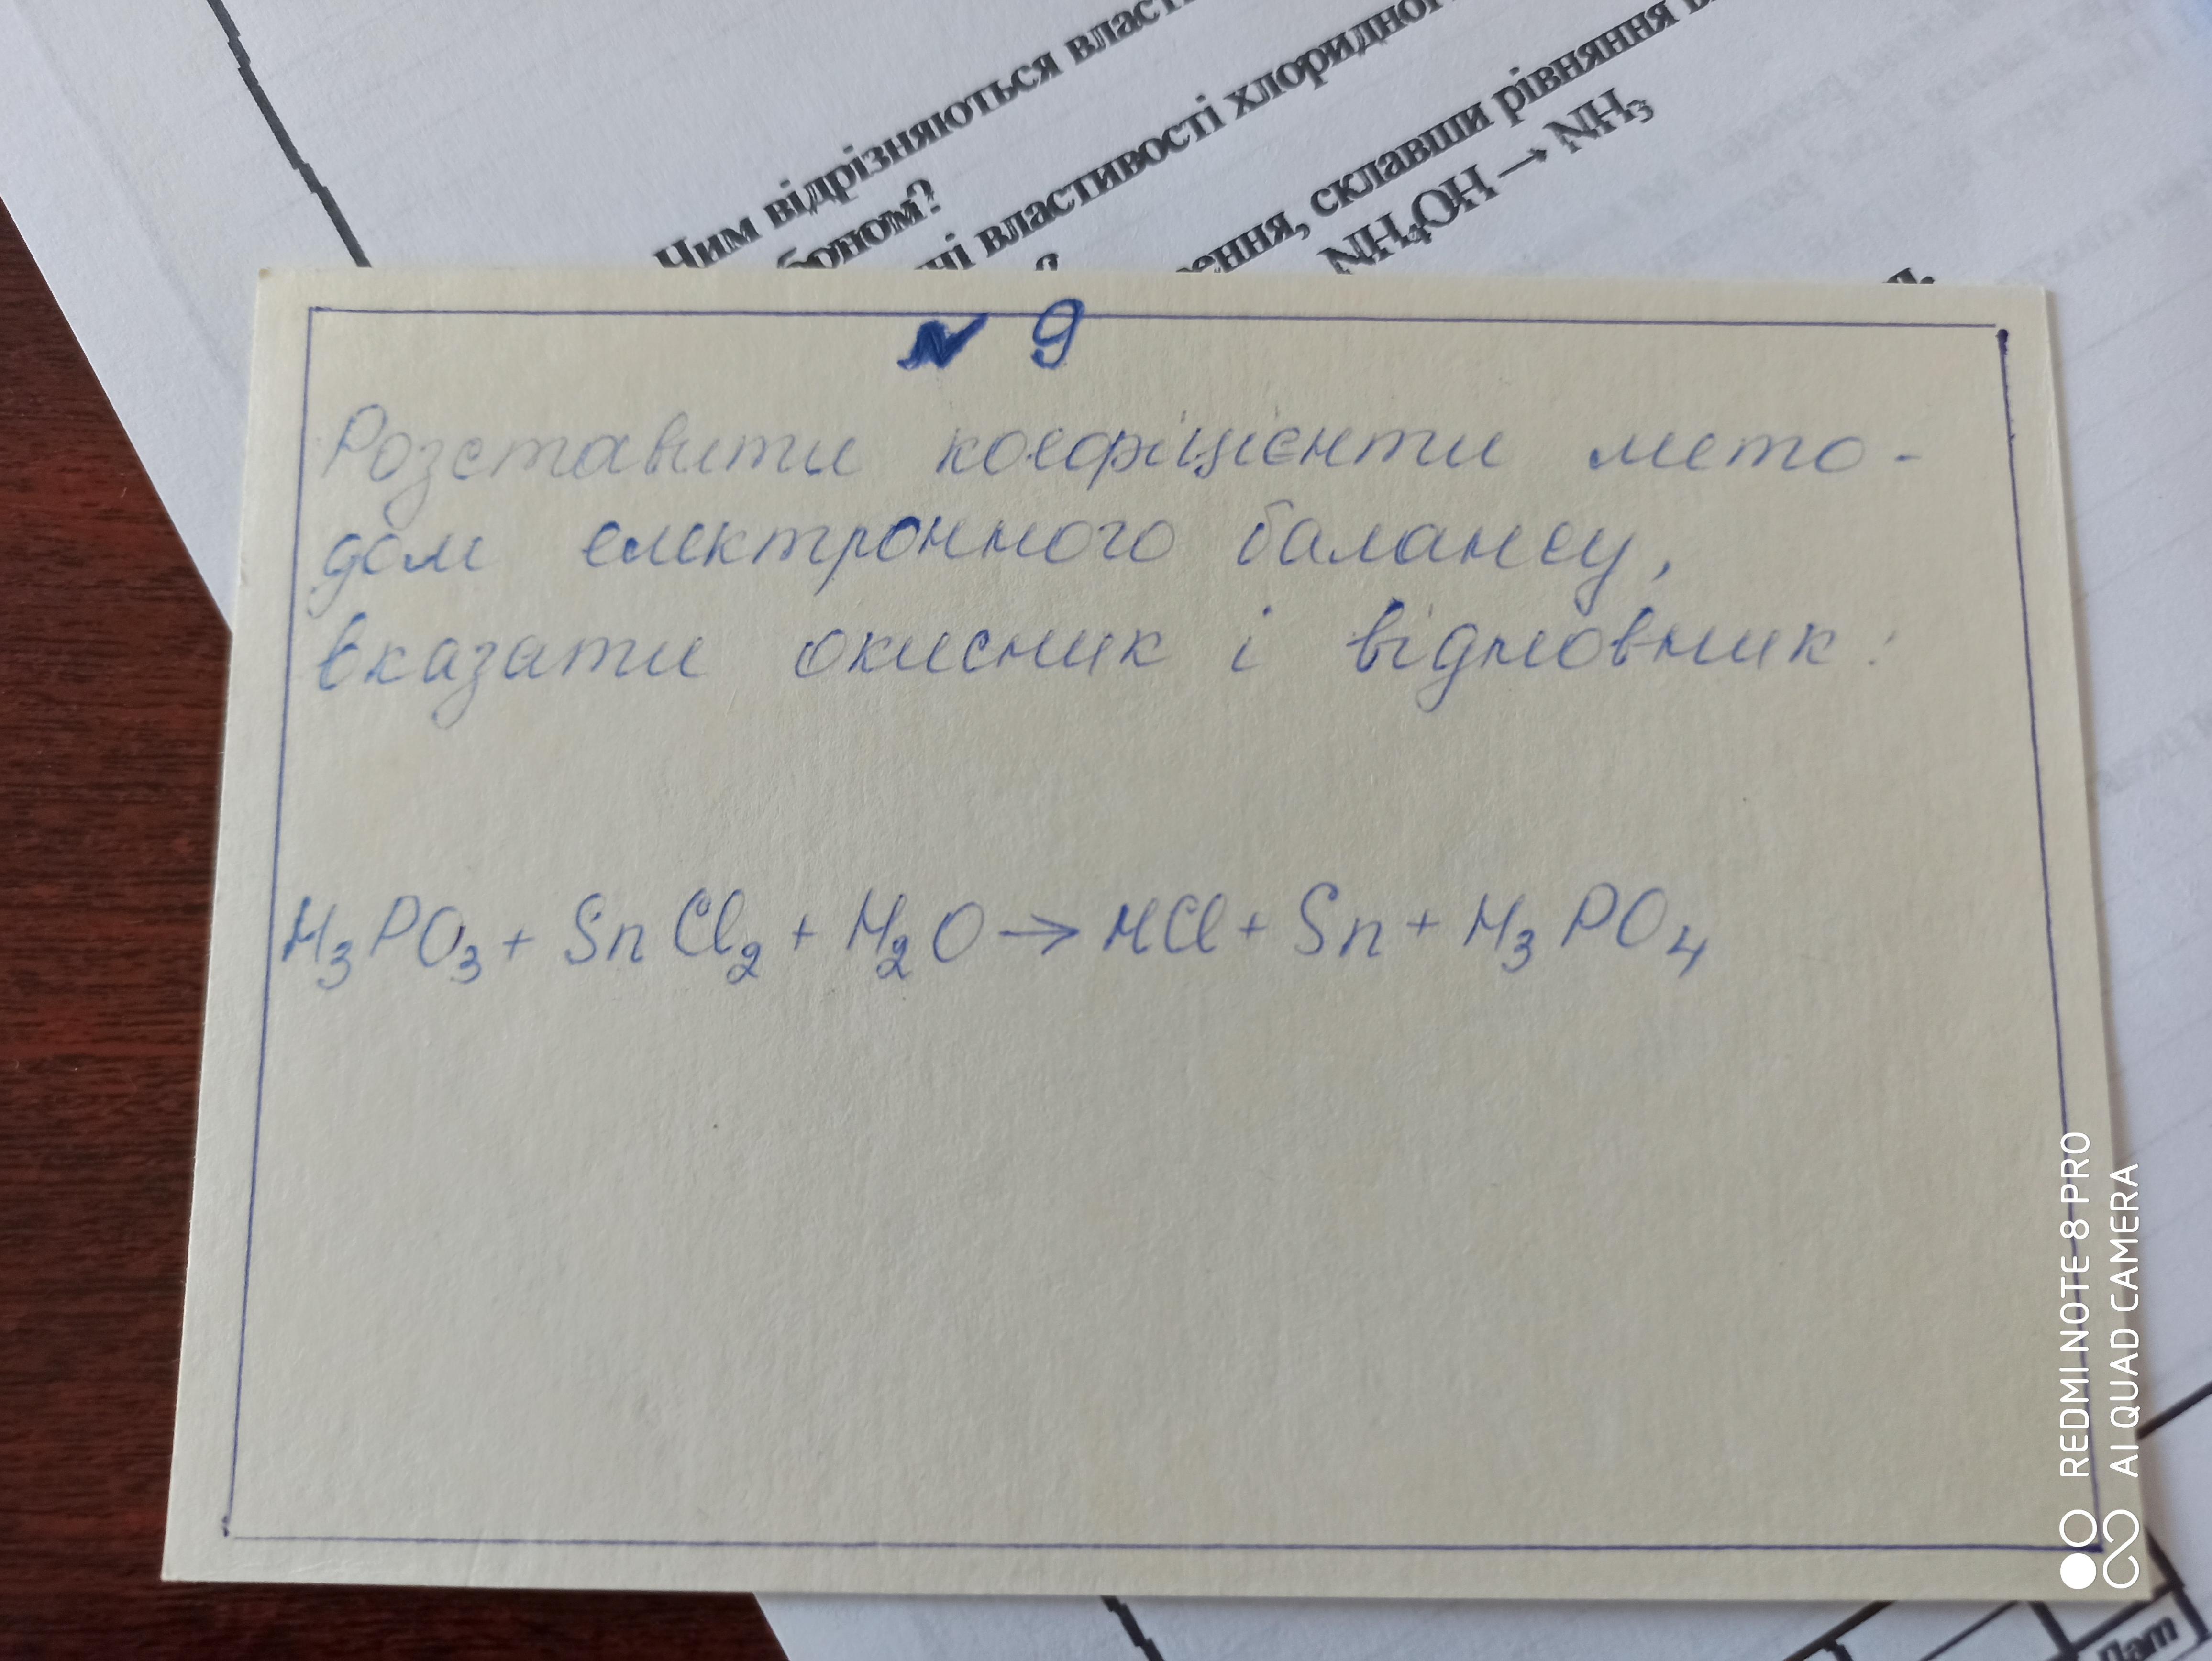 Чим відрізняються власти
боном?
ні властивості хлоридного
?
ення, склавши рівняння в
NH₄OH → NH₃
№ 9
Розставити коефіцієнти мето-
дом електронного балансу,
вказати окисник і відновник:
H₃PO₃ + SnCl₂ + H₂O → HCl + Sn + H₃PO₄
REDMI NOTE 8 PRO
AI QUAD CAMERA
Дат